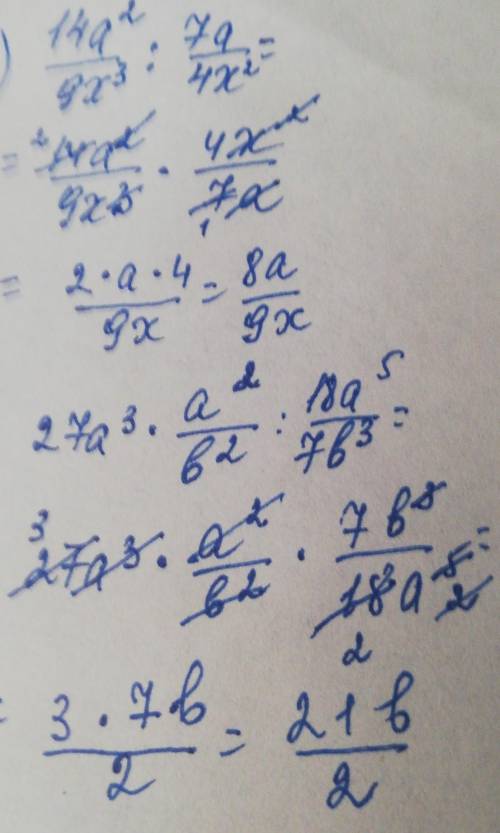 ) 14a²/9x³ : 7a/4x² =
= ² 14a²/9x³ · 4x²/7a ₁
= 2·a·4/9x = 8a/9x
27a³ · a²/b² : 18a⁵/7b³ =
³ 27a³ · a²/b² · 7b³/18a⁵ 2 2 =
= 3·7b/2 = 21b/2